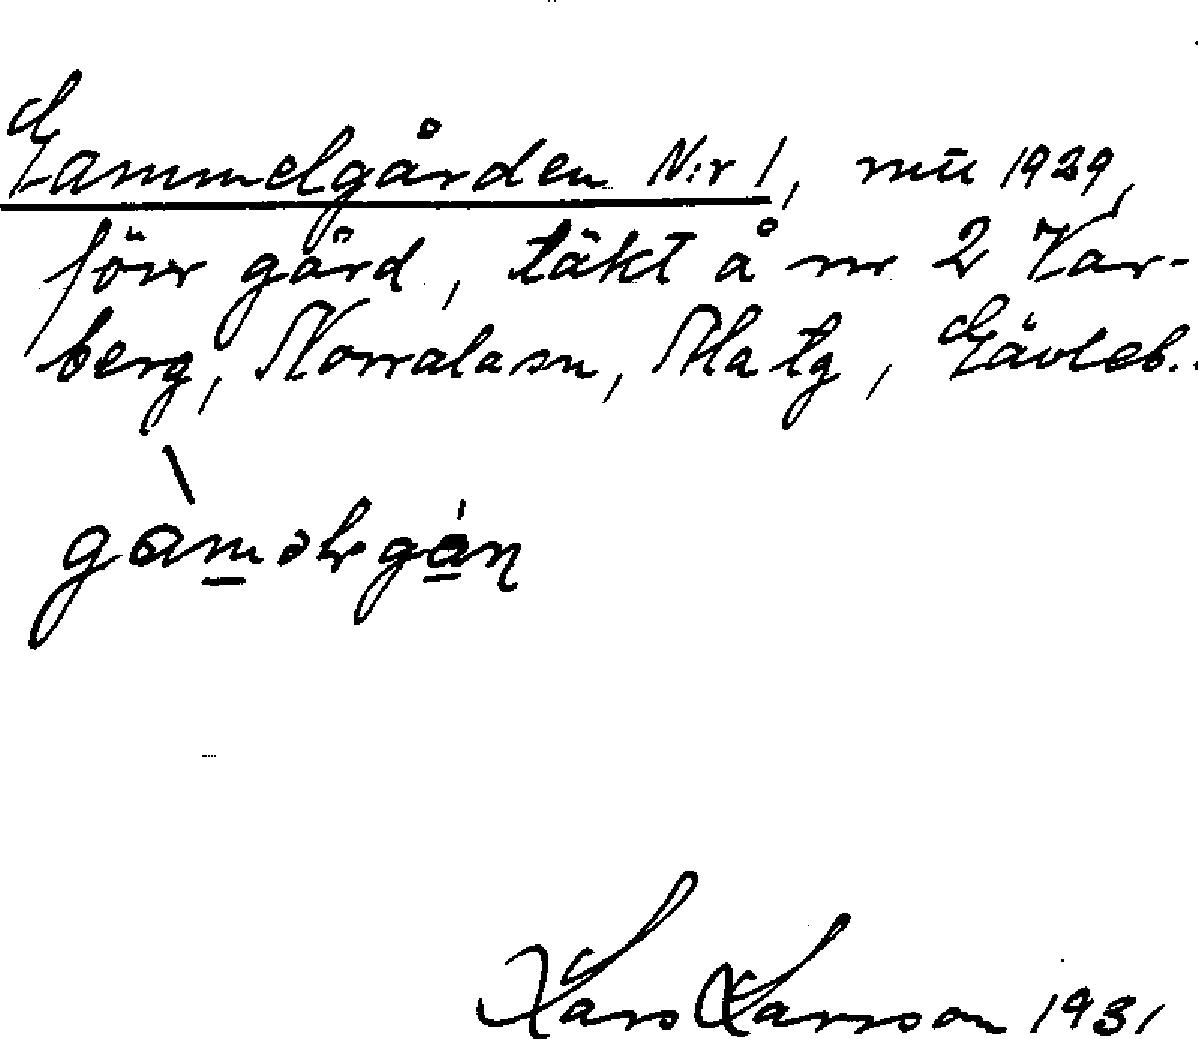 Gammelgården N:r 1, nu 1929,
förr gård, täkt å nr 2 Var-
berg, Norrala sn, Ala tg, Gävleb.
Lars Larsson 1931